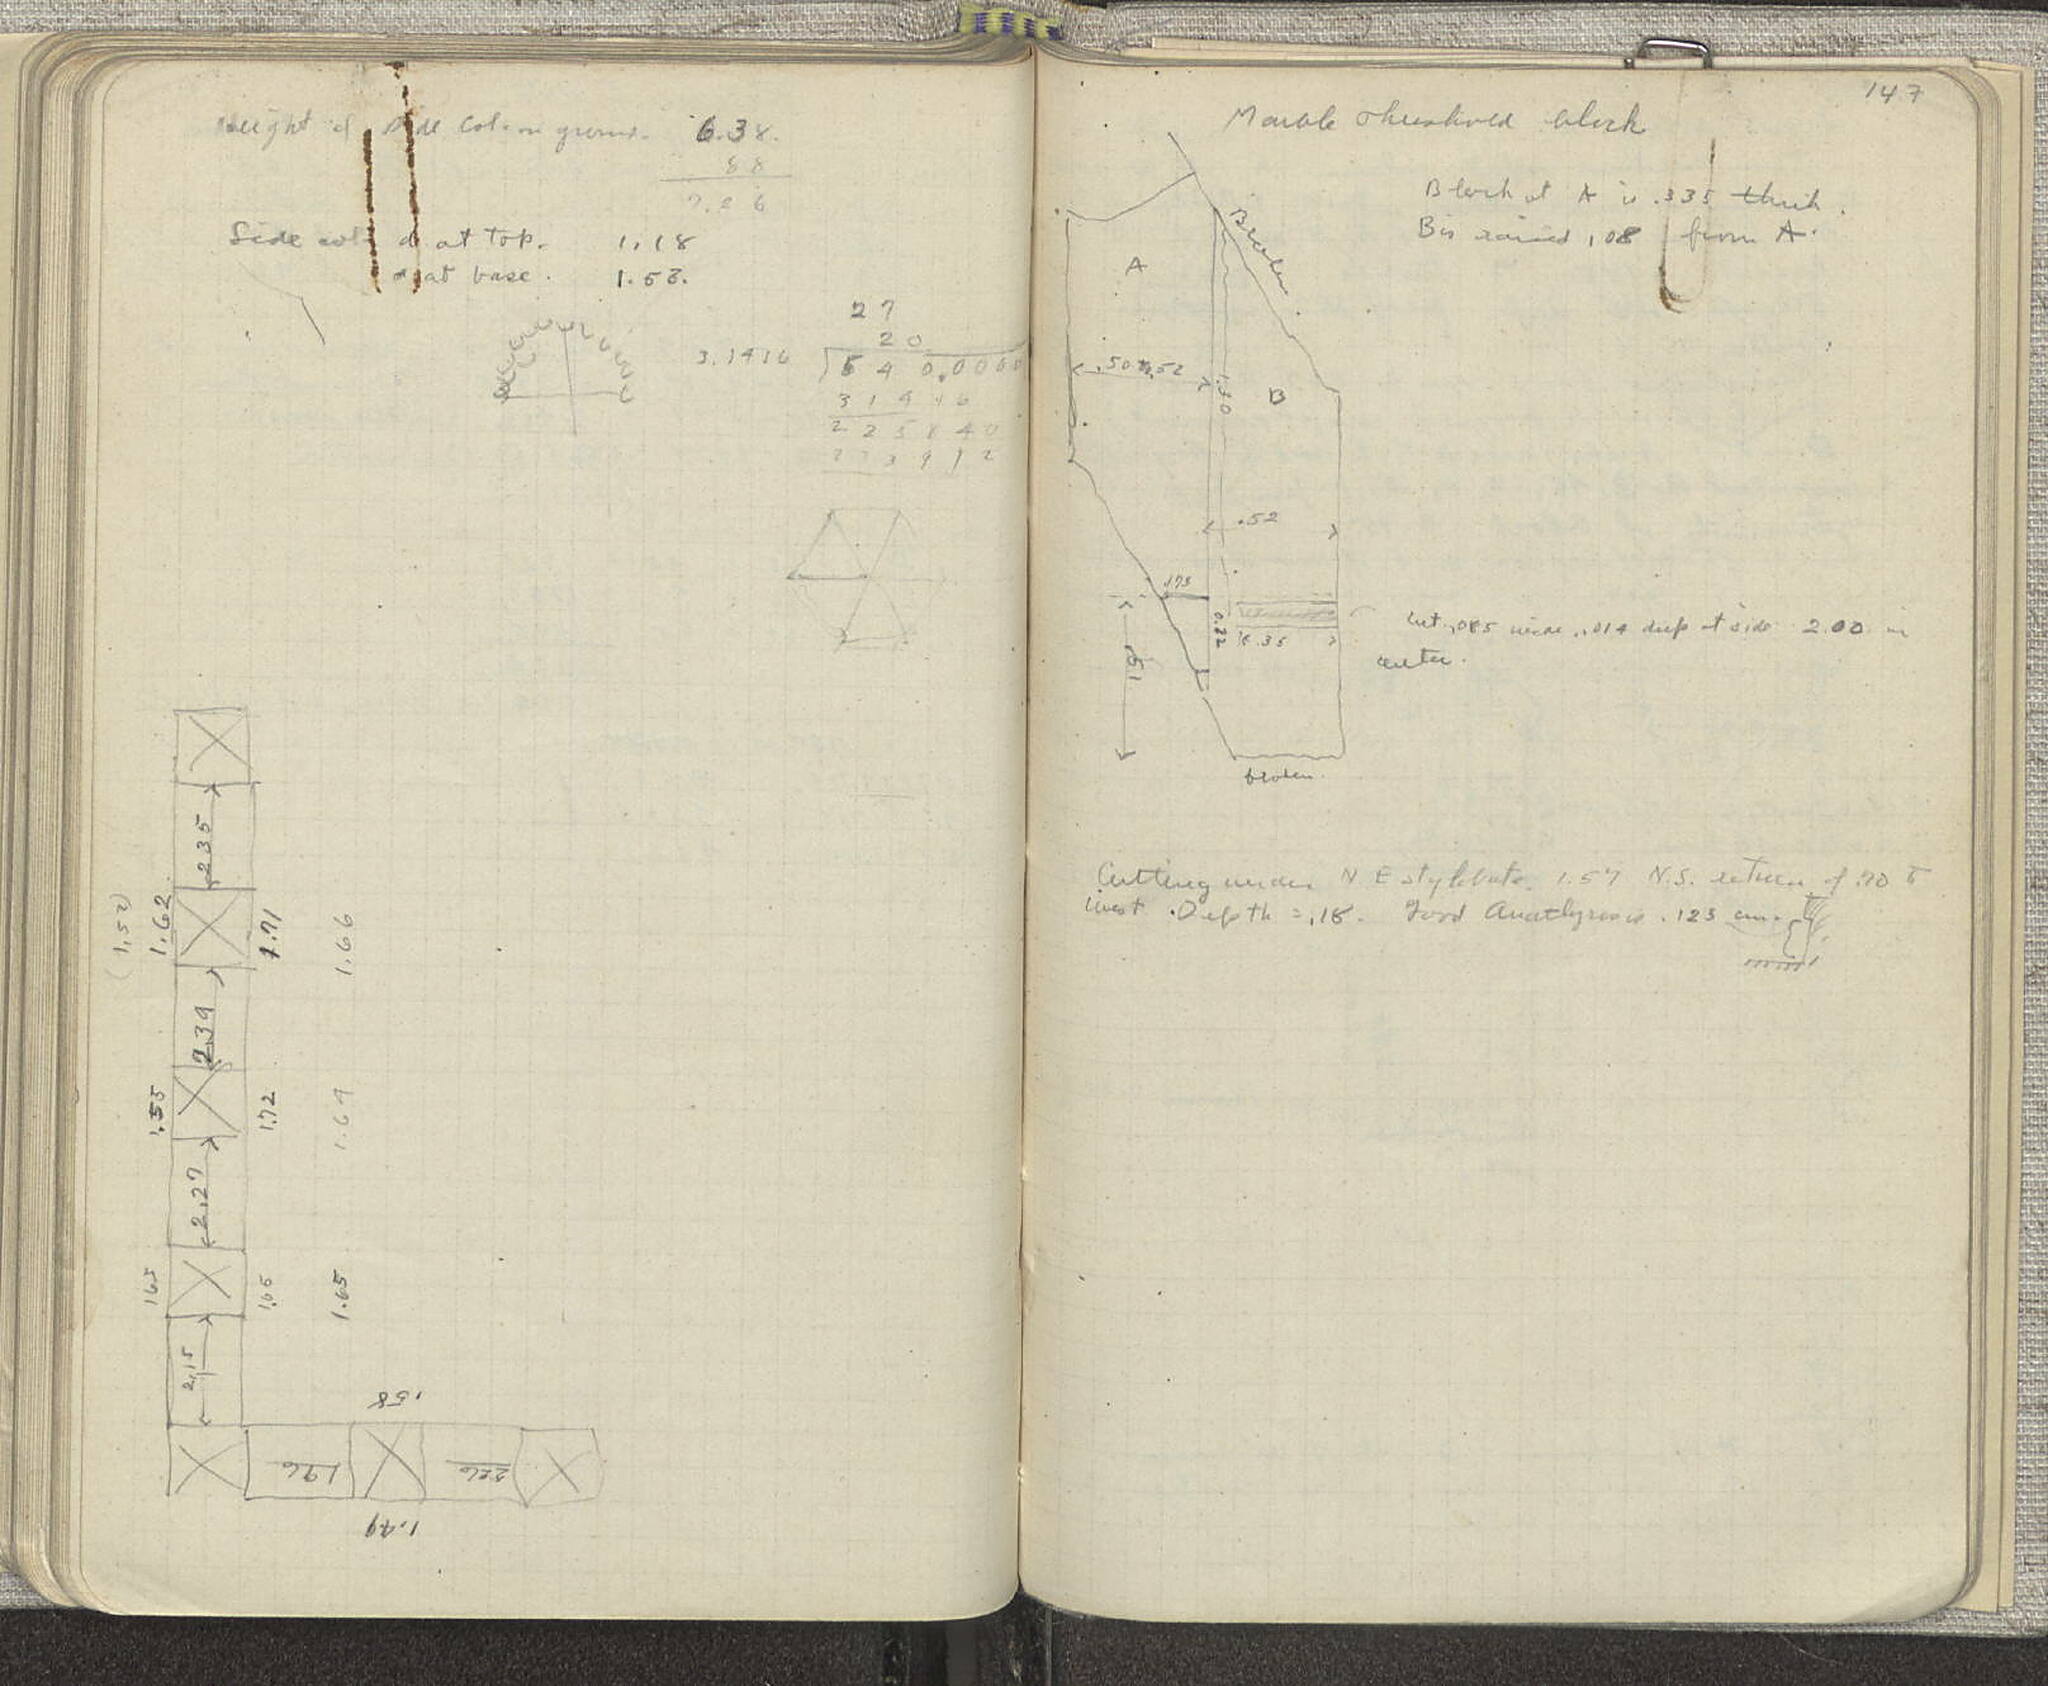 Height of side col. on ground. 6.38.
88
7.26
Side col. d at top. 1.18
d at base. 1.53.
27
20
3.1416 540.0000
31416
225840
223912
2.35
(1.52)
1.62
1.71
1.66
2.39
1.55
1.72
1.64
2.27
165
1.65
1.65
2.15
1.58
1.96
226
1.49
147
Marble threshold block
Block at A is .335 thick.
B is raised .08 from A.
Broken
A
.50 to .52
B
.52
.173
0.22
.35
cut .085 wide .014 deep at side 2.00 in
center.
.51
broken.
Cutting under N.E stylobate. 1.57 N.S. return of .70 to
West. Depth = .18. Good Anathyrosis .123 cm.